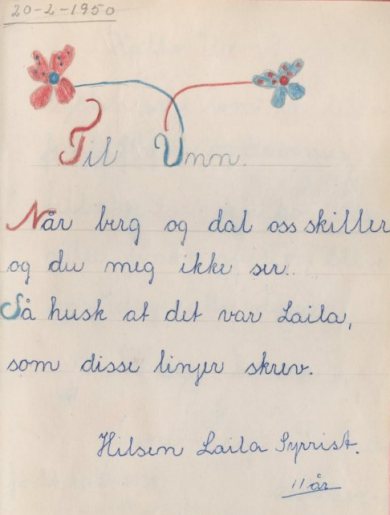 20-2-1950
Til Unn.
Når berg og dal oss skiller
og du meg ikke ser.
Så husk at det var Laila,
som disse linjer skrev.
Hilsen Laila Syrrist.
11 år